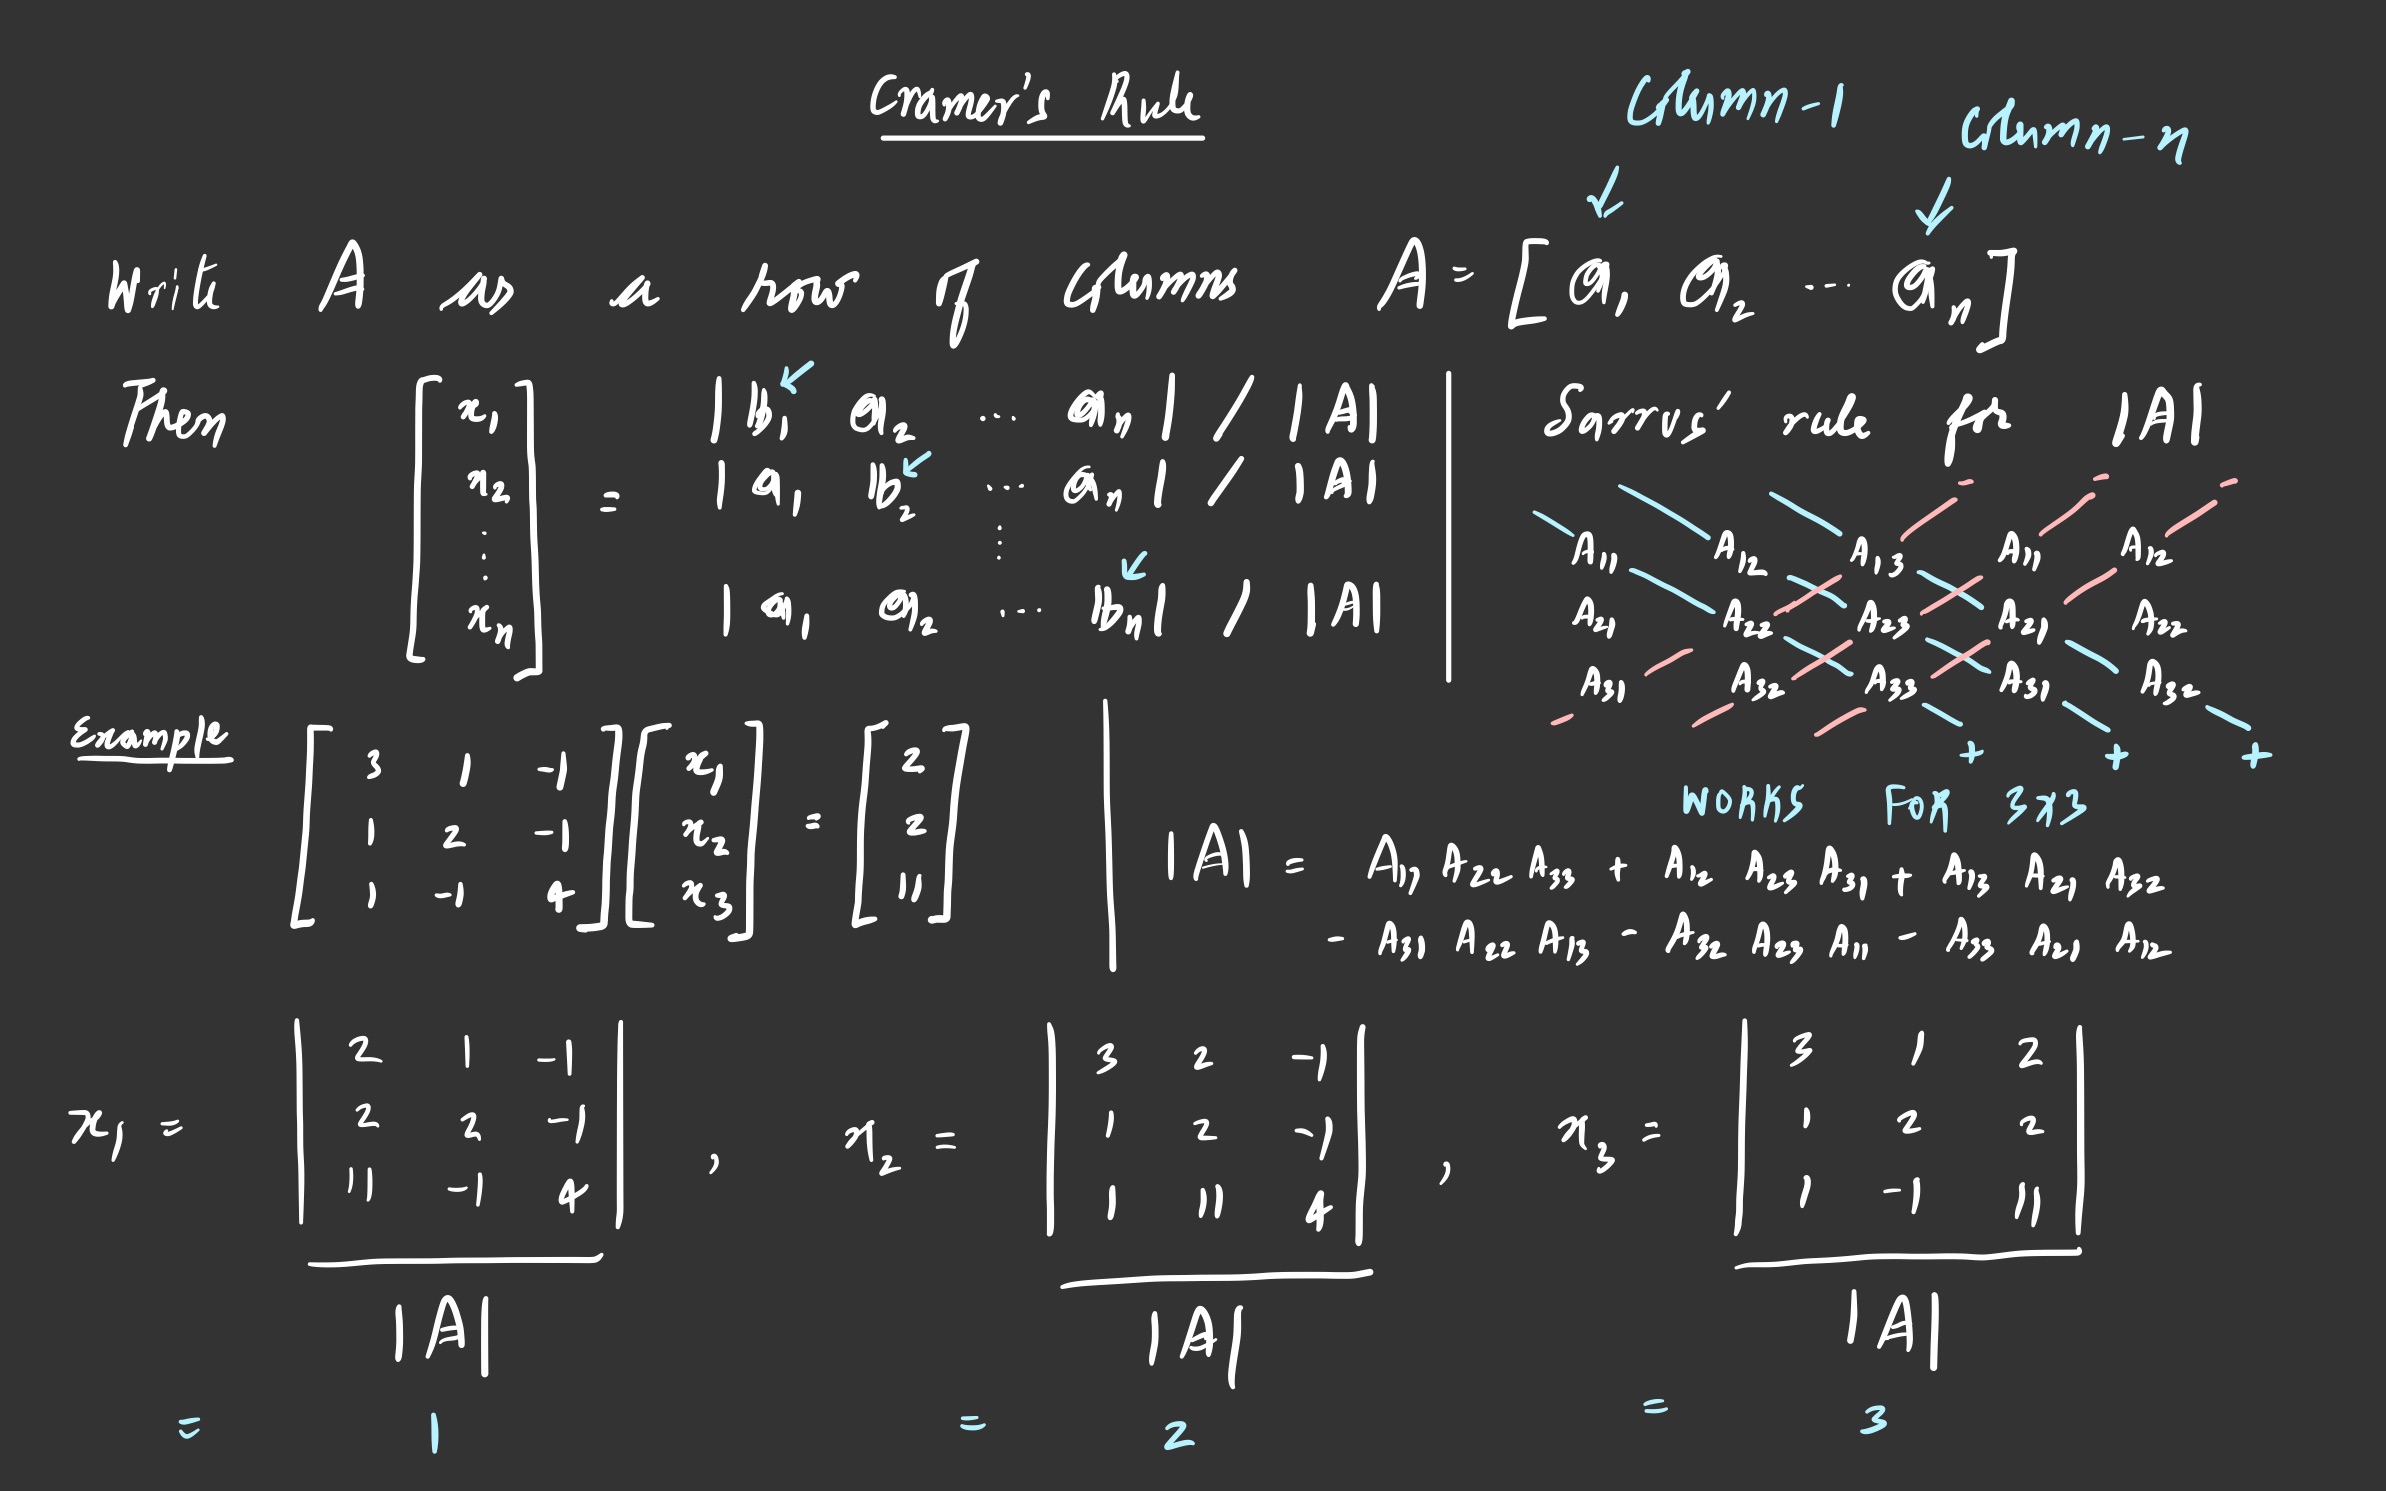 Cramer's Rule
Column-1
Column-n
Write A as a row of columns A = [ a₁ a₂ ... aₙ ]
Then
[ x₁ x₂ ⋮ xₙ ] =
| b₁ a₂ ... aₙ | / |A|
| a₁ b₂ ... aₙ | / |A|
⋮
| a₁ a₂ ... bₙ | / |A|
Sarrus' rule for |A|
- - -
A₁₁ A₁₂ A₁₃ A₁₁ A₁₂
A₂₁ A₂₂ A₂₃ A₂₁ A₂₂
A₃₁ A₃₂ A₃₃ A₃₁ A₃₂
+ + +
WORKS FOR 3x3
Example
[ 3 1 -1 ] [ x₁ ] [ 2 ]
[ 1 2 -1 ] [ x₂ ] = [ 2 ]
[ 1 -1 4 ] [ x₃ ] [ 11 ]
|A| = A₁₁ A₂₂ A₃₃ + A₁₂ A₂₃ A₃₁ + A₁₃ A₂₁ A₃₂
- A₃₁ A₂₂ A₁₃ - A₃₂ A₂₃ A₁₁ - A₃₃ A₂₁ A₁₂
x₁ =
| 2 1 -1 |
| 2 2 -1 |
| 11 -1 4 |
|A|
= 1
, x₂ =
| 3 2 -1 |
| 1 2 -1 |
| 1 11 4 |
|A|
= 2
, x₃ =
| 3 1 2 |
| 1 2 2 |
| 1 -1 11 |
|A|
= 3